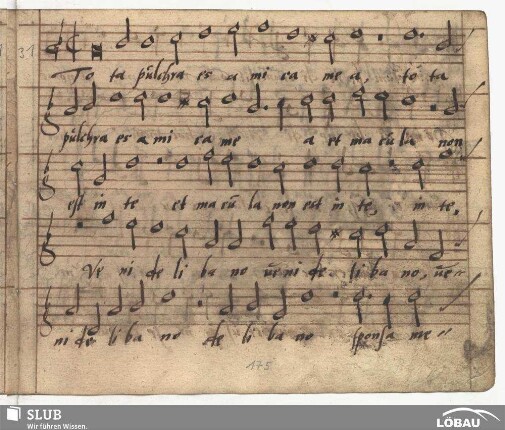 31
To ta pulchra es a mi ca me a, to ta
pulchra es a mi ca me a et macula non
est in te et macula non est in te, in te,
Ve ni de li ba no veni de li ba no, ve
ni de li ba no de li ba no sponsa me
175
SLUB
Wir führen Wissen.
LÖBAU